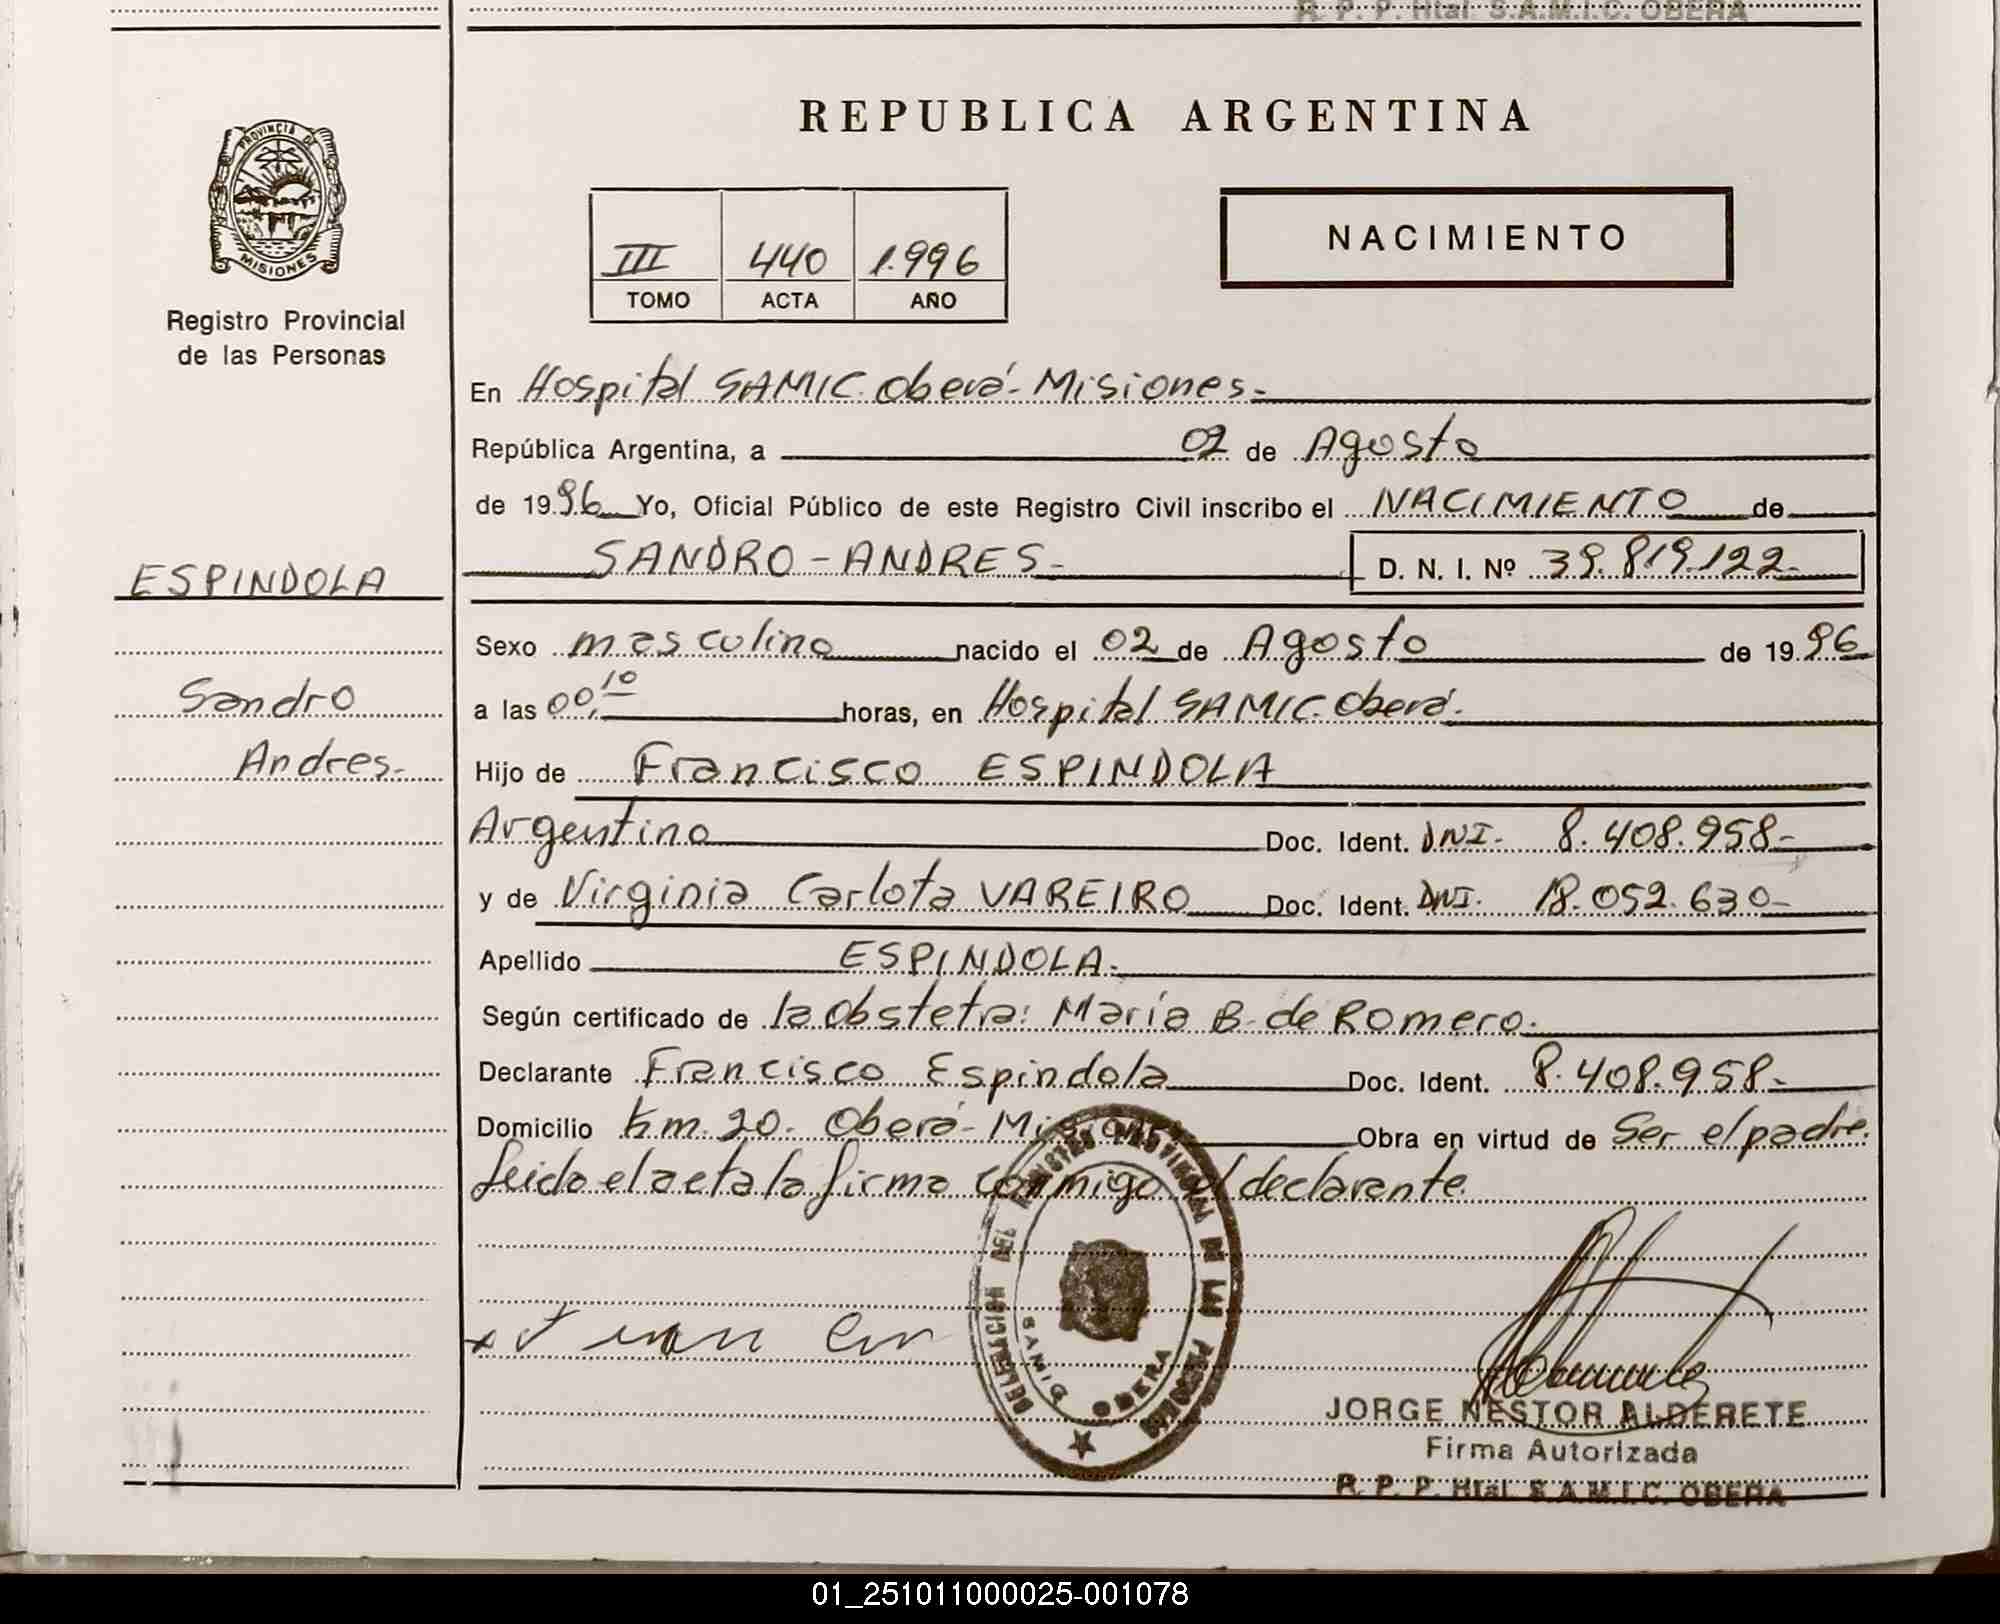 R. P. P. Htal. S.A.M.I.C. OBERA
REPUBLICA ARGENTINA
PROVINCIA DE
MISIONES
Registro Provincial
de las Personas
III 440 1.996
TOMO ACTA AÑO
NACIMIENTO
En Hospital SAMIC. Oberá - Misiones.-
República Argentina, a 02 de Agosto
de 1996 Yo, Oficial Público de este Registro Civil inscribo el NACIMIENTO de
ESPINDOLA
SANDRO - ANDRES.- D. N. I. Nº 39.819.122.-
Sexo masculino nacido el 02 de Agosto de 1996
Sandro
a las 00,10 horas, en Hospital SAMIC. Oberá.
Andres.-
Hijo de Francisco ESPINDOLA
Argentino Doc. Ident. DNI. 8.408.958-
y de Virginia Carlota VAREIRO Doc. Ident. DNI. 18.052.630-
Apellido ESPINDOLA.-
Según certificado de la obstetra: María B. de Romero.-
Declarante Francisco Espindola Doc. Ident. 8.408.958.-
Domicilio Km. 20. Oberá - Misiones Obra en virtud de Ser el padre.
leida el acta la firma conmigo el declarante.
DELEGACION DEL REGISTRO PROVINCIAL DE LAS PERSONAS
SAMIC OBERA
JORGE NESTOR ALDERETE
Firma Autorizada
R. P. P. Htal. S.A.M.I.C. OBERA
01_251011000025-001078